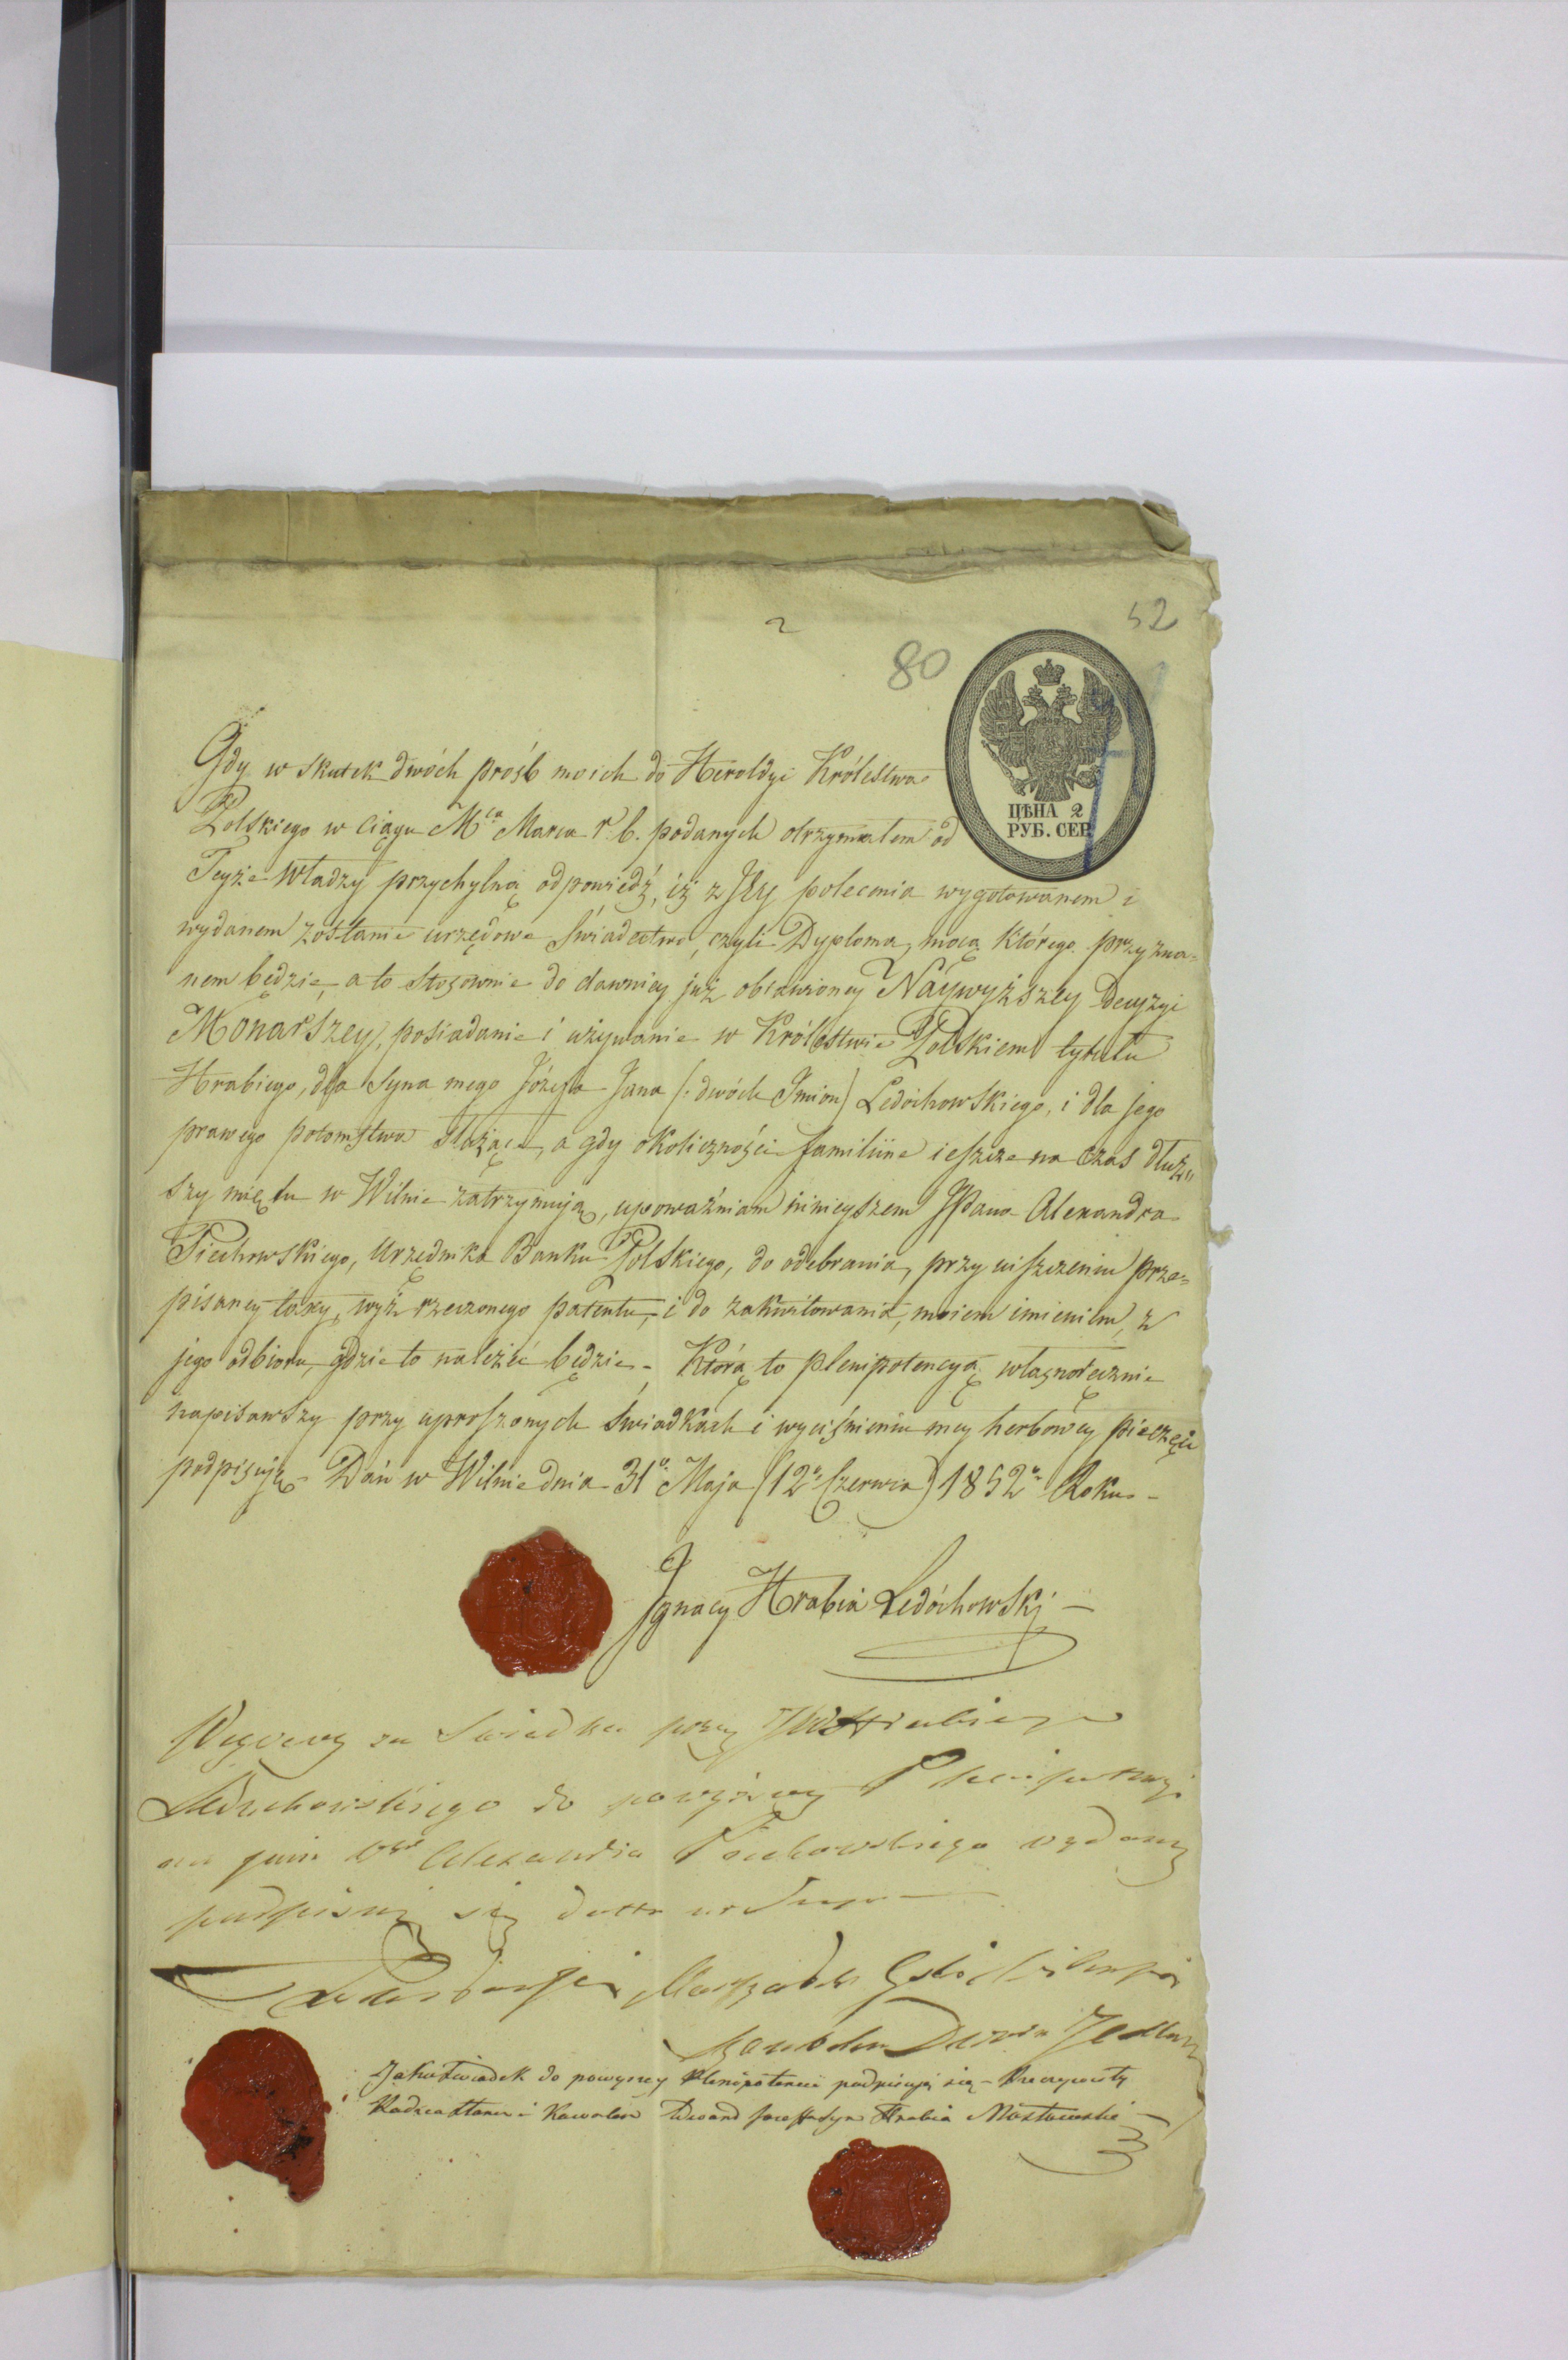 52
2
80
ЦѢНА 2
РУБ. СЕР.
Gdy w skutek dwóch prośb moich do Heroldyi Królestwa
Polskiego w ciągu Mca Marca r. b. podanych otrzymałem od
Teyże Władzy przychylną odpowiedź, iż z Jey polecenia wygotowanem i
wydanem zostanie urzędowe Świadectwo, czyli Dyploma, mocą którego przyzna=
nem będzie, a to stosownie do dawniey już obiawioney Náywyższey Decyzyi
Monarszey, posiadanie i używanie w Królestwie Polskiem tytułu
Hrabiego, dla Syna mego Józefa Jana (: dwóch Imion) Ledóchowskiego, i dla jego
prawego potomstwa służące, a gdy okoliczności familiine ieszcze na czas dłuż„
szy mię tu w Wilnie zatrzymują, upoważniam ninieyszem JPana Alexandra
Piechowskiego, Urzędnika Banku Polskiego, do odebrania, przy uiszczeniu prze=
pisaney taxy, wyż rzeczonego patentu, i do zakwitowania, moiem imieniem, z
jego odbioru, gdzie to należeć będzie. Którą to plenipotencyą własnoręcznie
napisawszy przy uproszonych świadkach i wyciśnieniu mey herbowey pieczęci
podpisuję. Dań w Wilnie dnia 31o Maja (12o Czerwca) 1852o Roku.
Ignacy Hrabia Ledóchowski
za Swiadka przy JW Hrabiego
Leduchowskiego do powyższey Plenipotencyi
na Alexandra Piechowskiego wydaney
podpisuję się datto ut Supra
Jako świadek do powyzszey Plenipotencii podpisuję się - Rzeczywisty
Radzca Stanu i Kawaler Edward Hrabia Mostowski